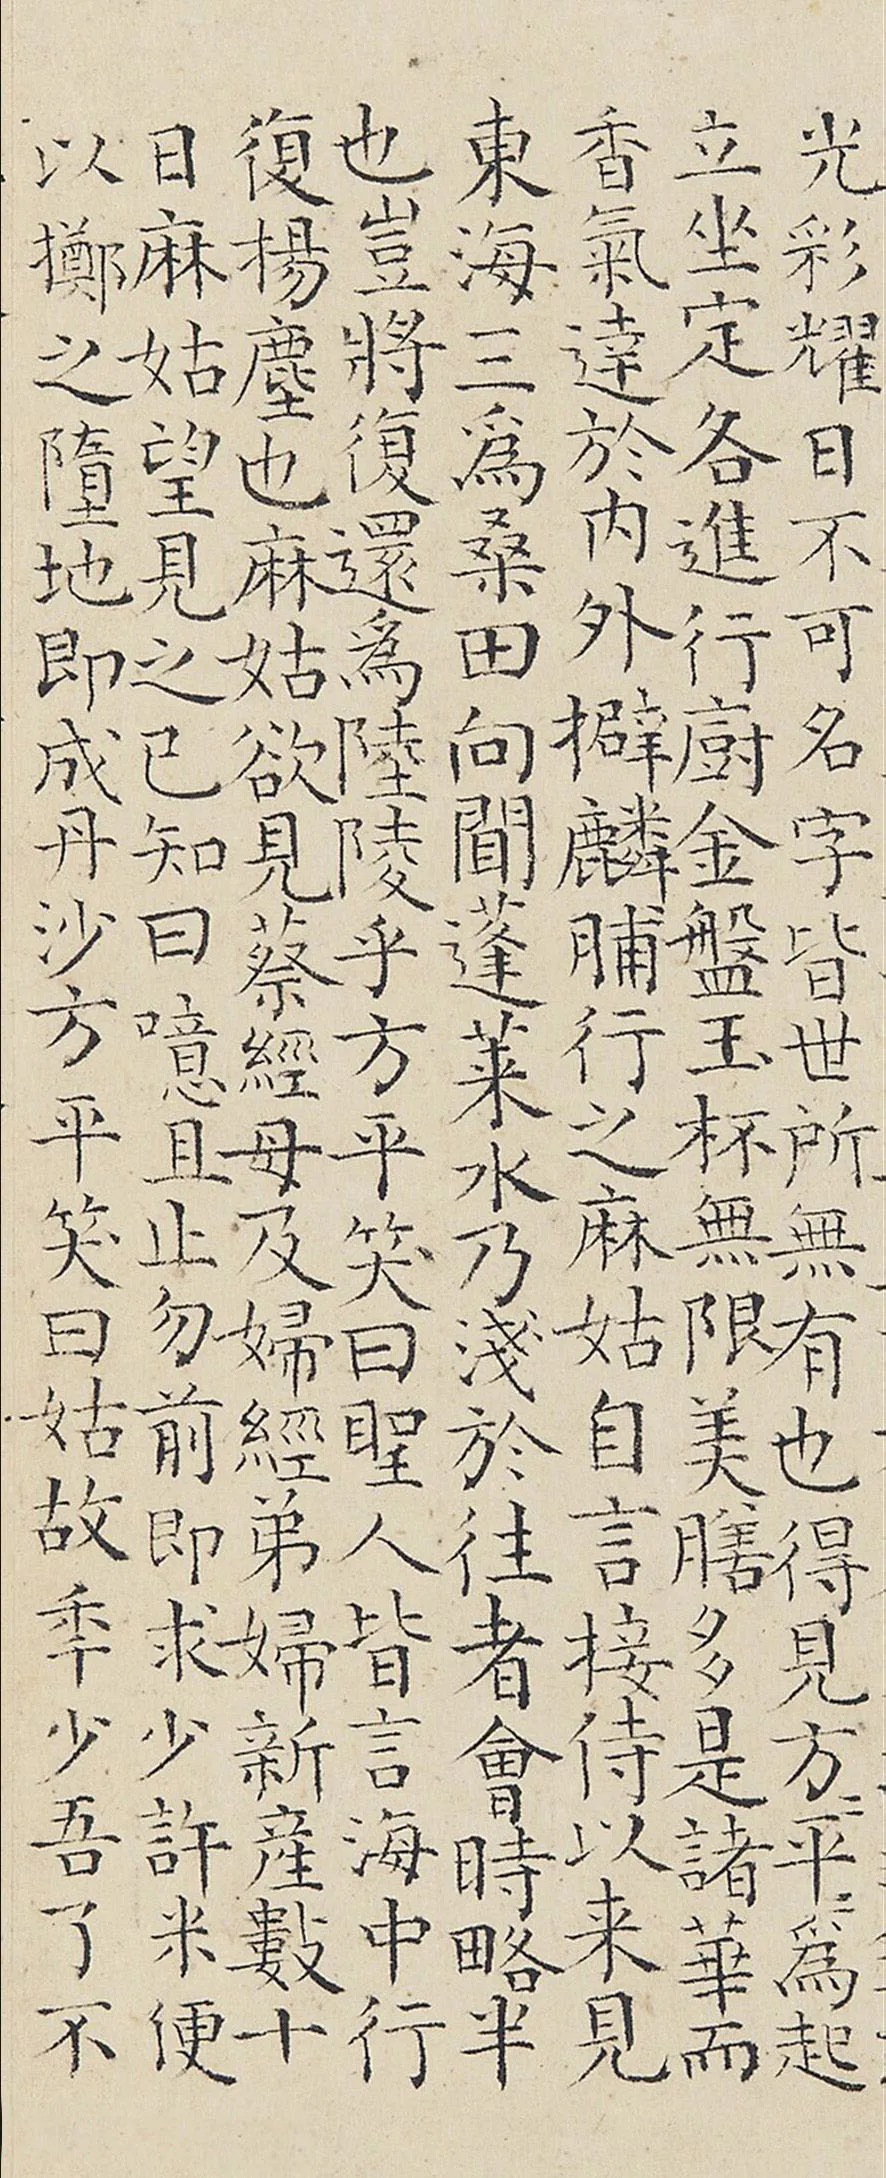 光彩耀日不可名字皆世所無有也得見方〻平〻爲起
立坐定各進行廚金盤玉杯無限美膳多是諸華而
香氣達於内外擗麟脯行之麻姑自言接侍以来見
東海三爲桑田向閒蓬莱水乃淺於往者會時略半
也豈將復還爲陸陵乎方平笑曰聖人皆言海中行
復揚塵也麻姑欲見蔡經母及婦經弟婦新産數十
日麻姑望見之已知曰噫且止勿前即求少許米便
以擲之墮地即成丹沙方平笑曰姑故秊少吾了不